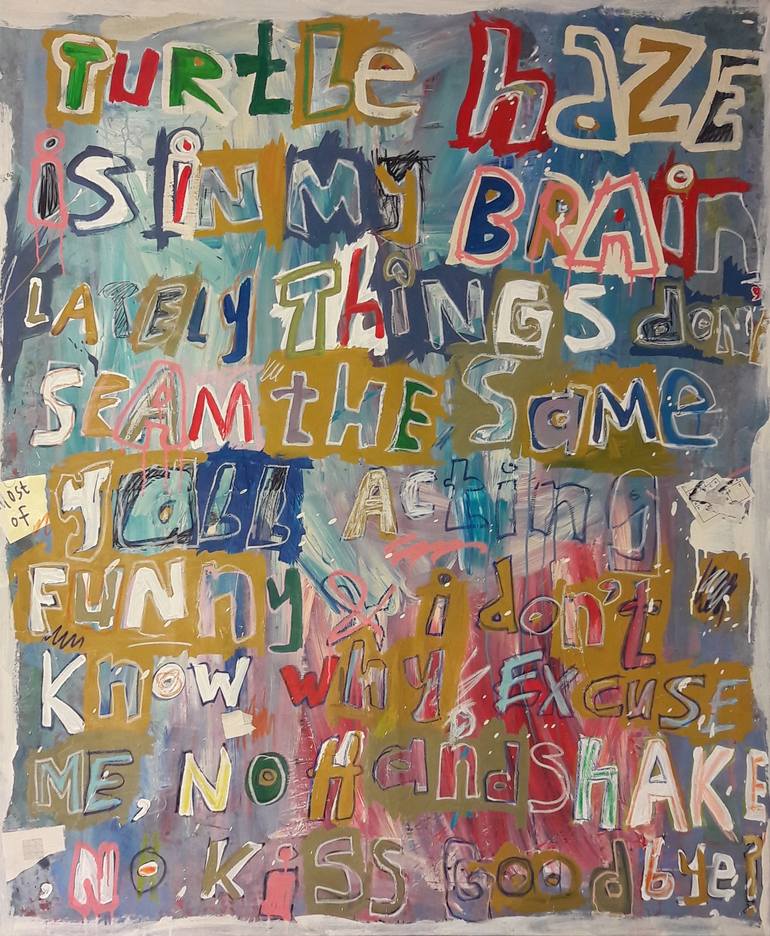 TURtLe haZE
iS iN MY BRAin
LATELY ThiNGS don't
SEAM tHE Same
yall Acting
FUNny & i don't
Know why. EXCUSE
ME, No HandShAKE
, No. KiSS Goodbye?
Most
of